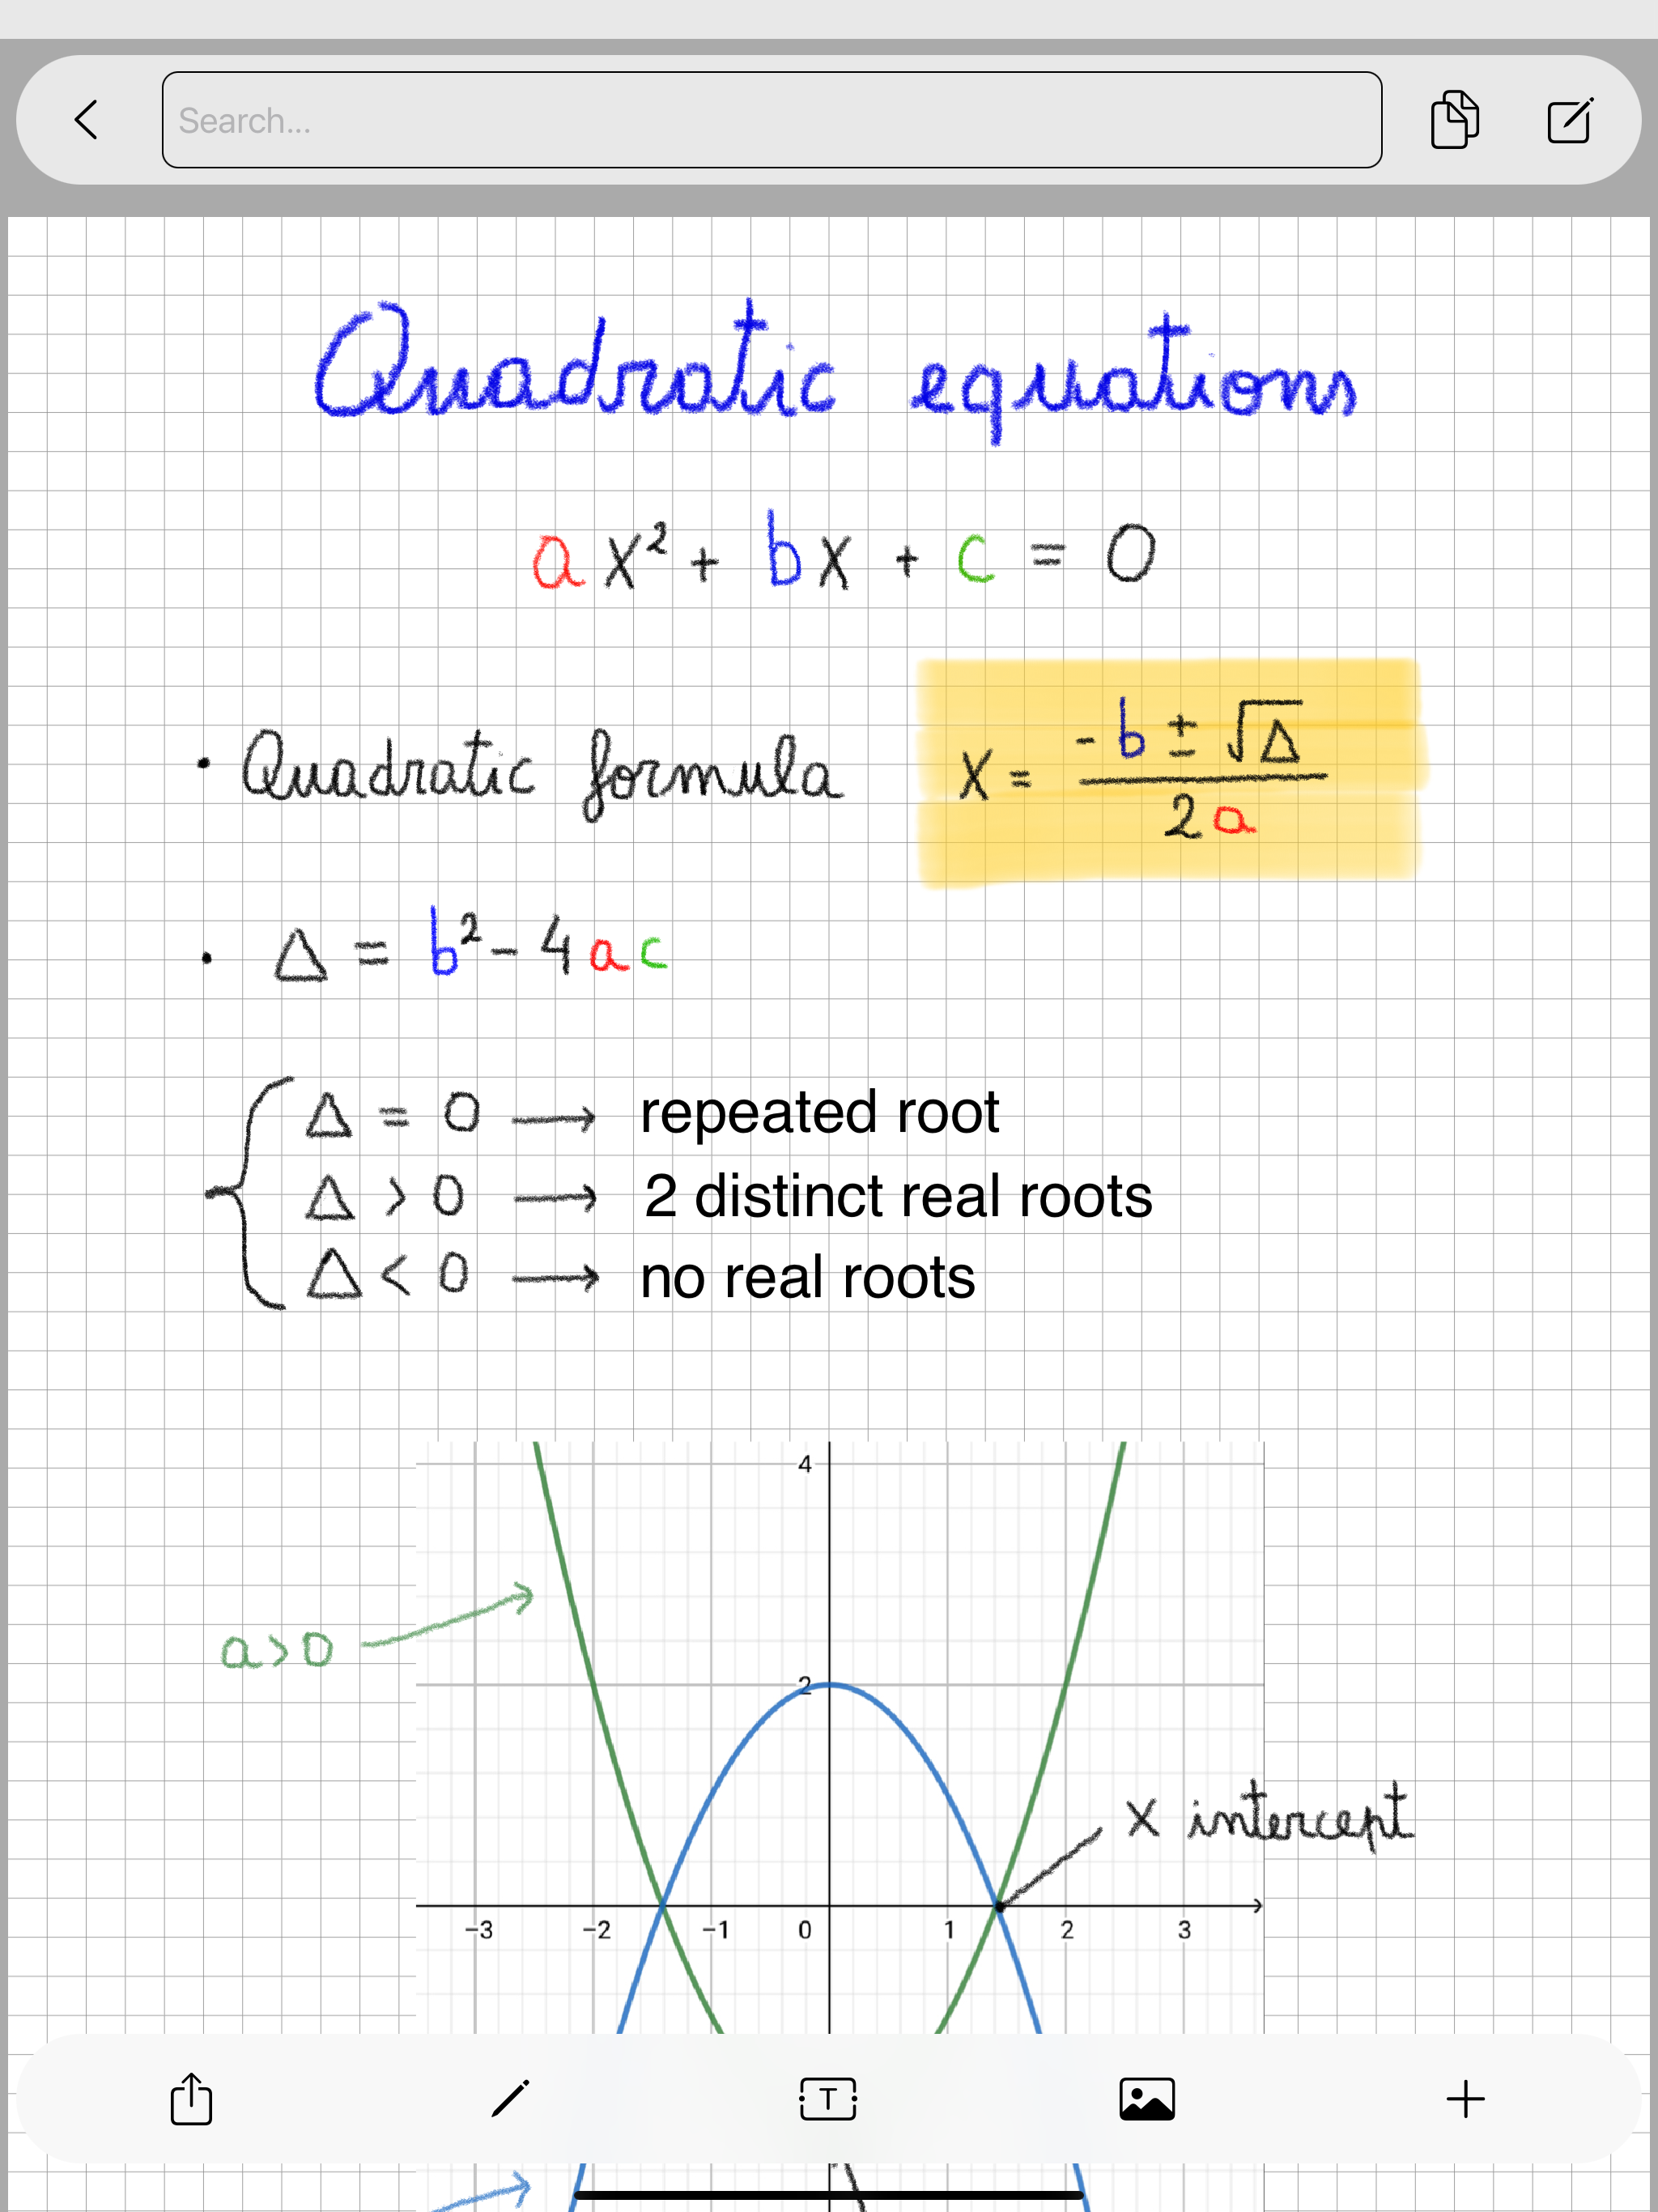 Search...
Quadratic equations
ax² + bx + c = 0
• Quadratic formula x = (-b ± √Δ) / 2a
• Δ = b² - 4ac
Δ = 0 → repeated root
Δ > 0 → 2 distinct real roots
Δ < 0 → no real roots
4
a>0
2
x intercept
-3 -2 -1 0 1 2 3
T